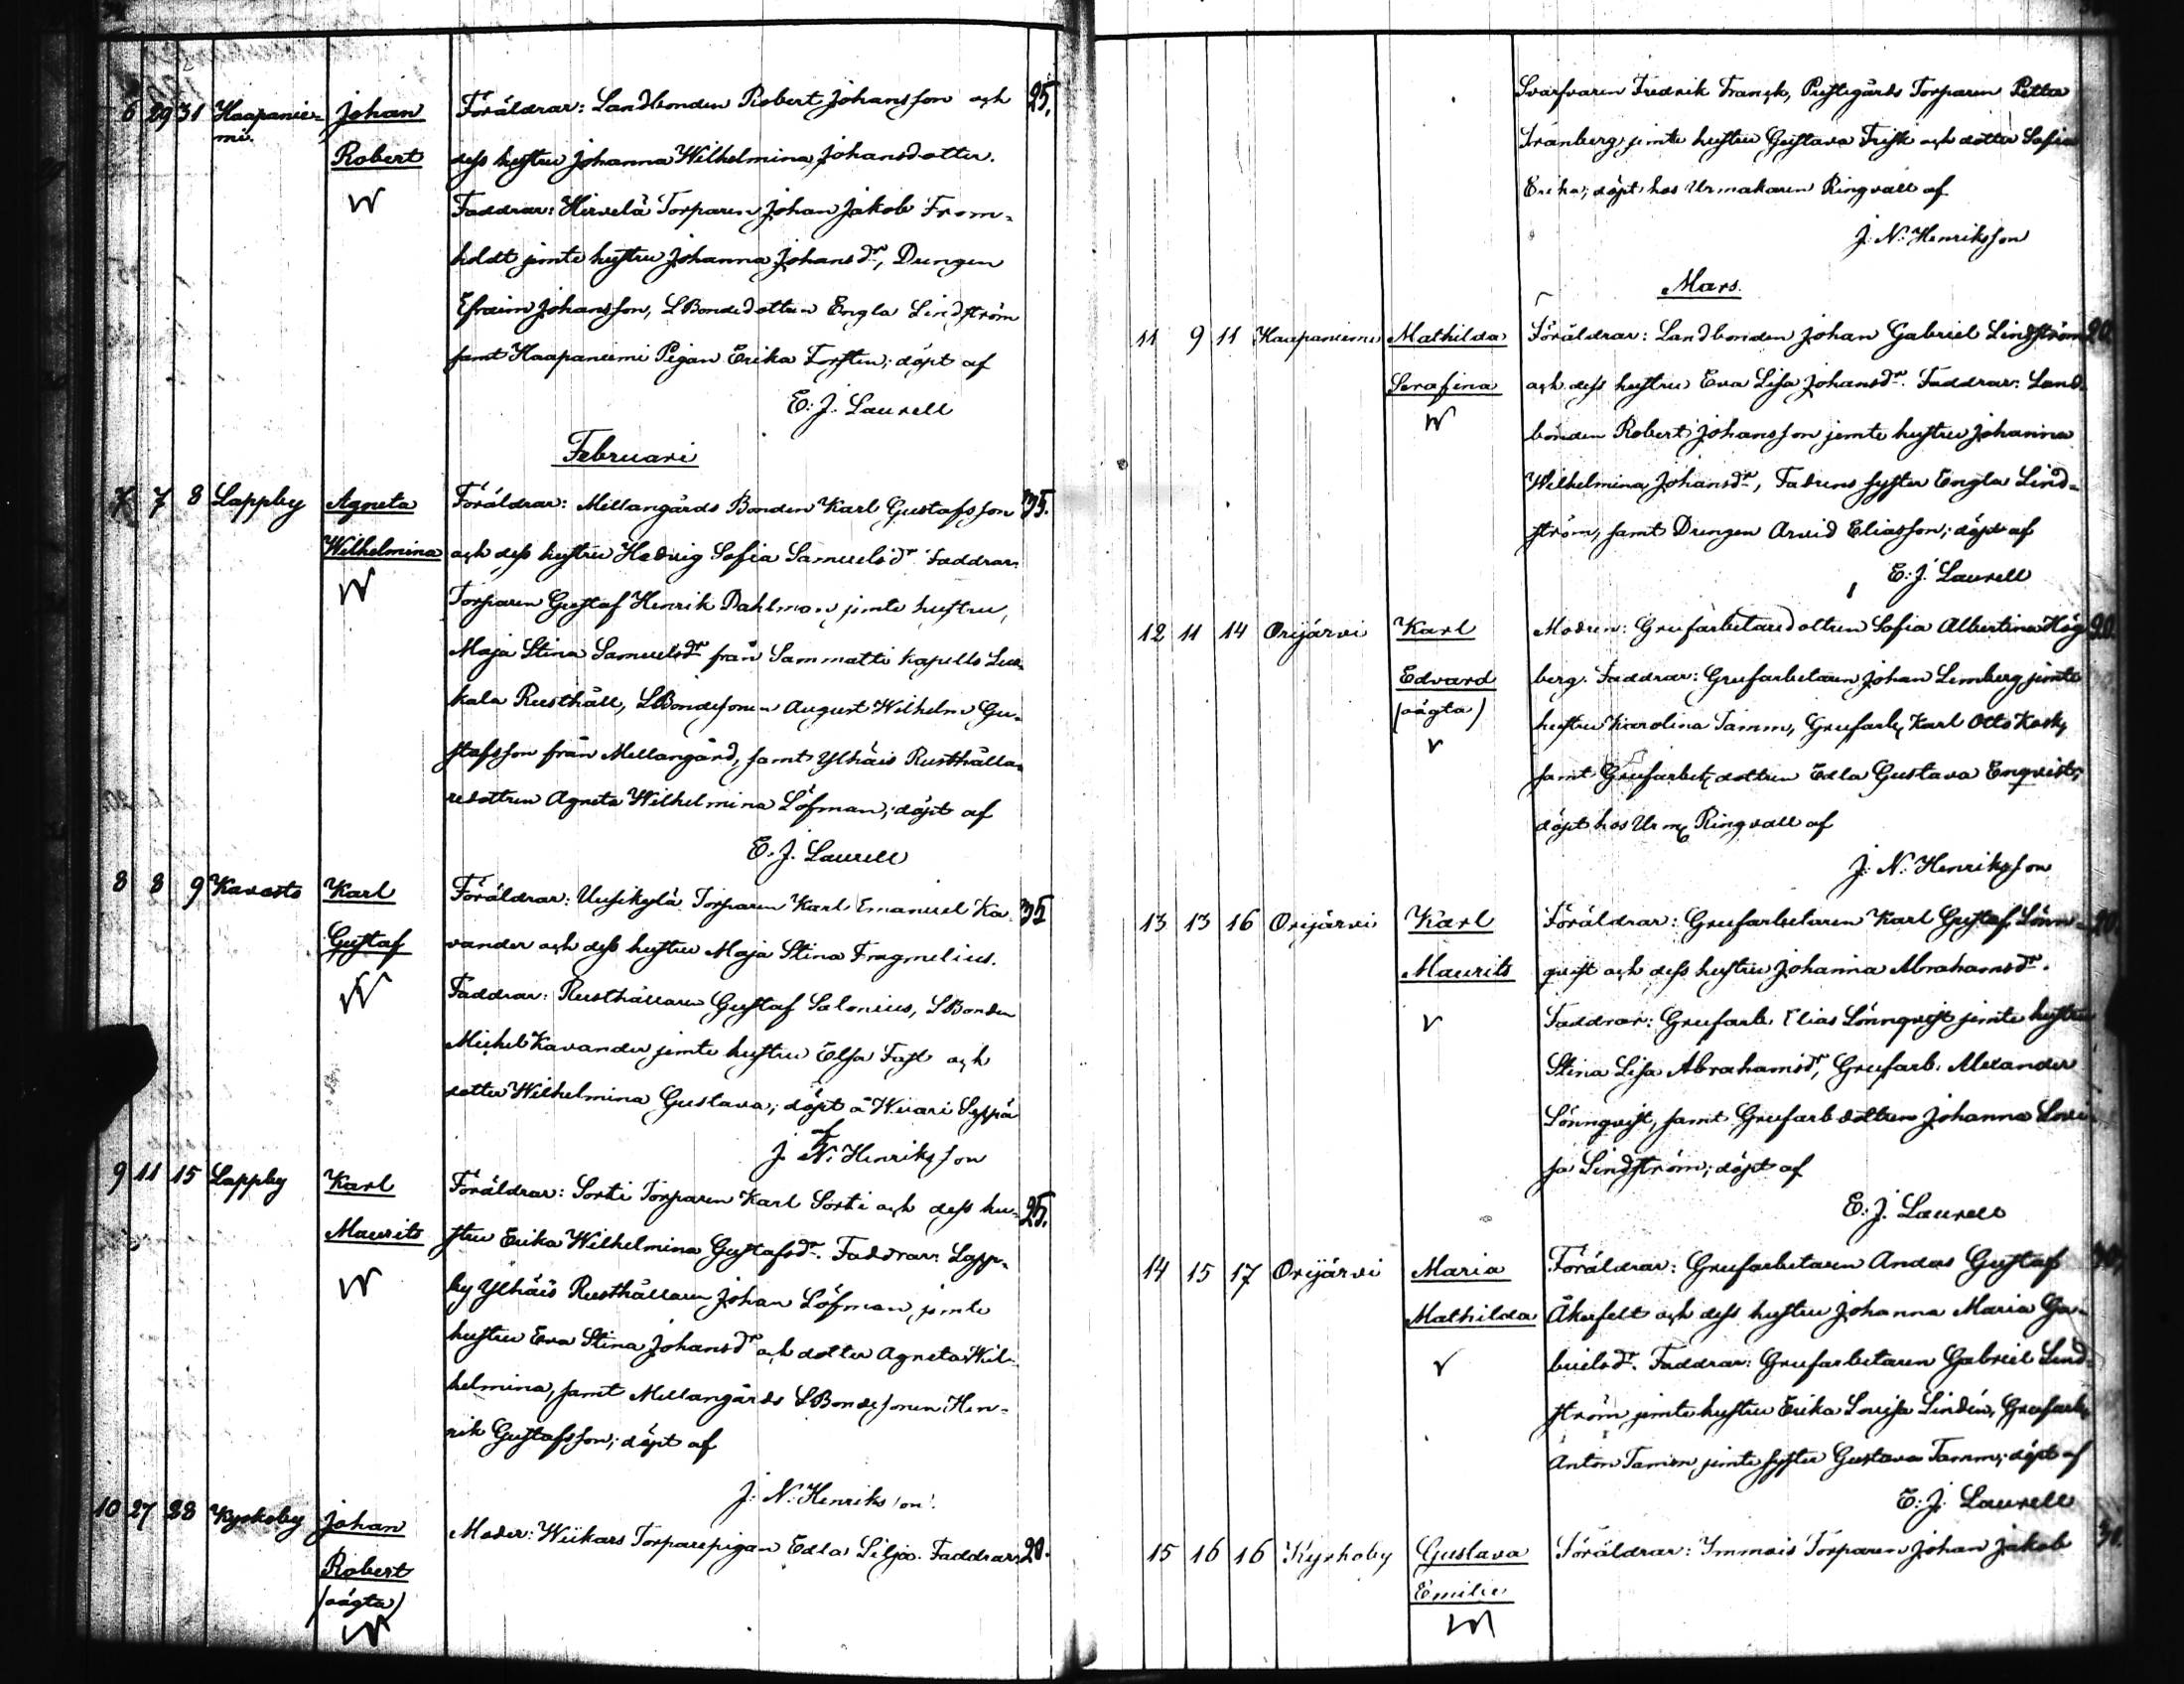 6 29 31 Haapanie- Johan Föräldrar: Landbonden Robert Johansson och 25.
mi. Robert dess hustru Johanna Wilhelmina Johansdotter.
Faddrar: Hirvelä Torparen Johan Jakob From-
holdt jemte hustru Johanna Johansdr, Drengen
Efraim Johansson, LBondedottren Engla Lindström
samt Haapaniemi Pigan Erika Torstin; döpt af
E. J. Laurell
Februari
7 7 8 Lappby Agneta Föräldrar: Mellangårds Bonden Karl Gustafsson 35.
Wilhelmina och dess hustru Hedvig Sofia Samuelsdr. Faddrar:
Torparen Gustaf Henrik Dahlman jemte hustru,
Maja Stina Samuelsdr från Sammatti Kapells Luk-
kala Rusthåll, LBondesonen August Wilhelm Gu-
stafsson från Mellangård, samt Ylhäis Rusthålla-
redottren Agneta Wilhelmina Löfman; döpt af
E. J. Laurell
8 8 9 Kavasto Karl Föräldrar: Uusikylä Torparen Karl Emanuel Ka- 35
Gustaf vander och dess hustru Maja Stina Fragmelius.
Faddrar: Rusthållaren Gustaf Salonius, LBonden
Michel Kavander jemte hustru Elsa Fast och
dotter Wilhelmina Gustava; döpt å Wiiari Seppä
af
J. N. Henriksson
9 11 15 Lappby Karl Föräldrar: Sorti Torparen Karl Sorti och dess hu- 25.
Maurits stru Erika Wilhelmina Gustafsdr. Faddrar: Lapp-
by Ylhäis Rusthållaren Johan Löfman jemte
hustru Eva Stina Johansdr och dotter Agneta Wil-
helmina, samt Mellangårds LBondesonen Hen-
rik Gustafsson; döpt af
J. N. Henriksson.
10 27 28 Kyrkoby Johan Moder: Wiikars Torparepigan Edla Silja. Faddrar: 20.
Robert
(oägta)
Svarfvaren Fredrik Franck, Prestgårds Torparen Petter
Tranberg jemte hustru Gustava Frisk och dotter Sofia
Erika; döpt hos Urmakaren Ringvall af
J. N. Henriksson
Mars.
11 9 11 Haapaniemi Mathilda Föräldrar: Landbonden Johan Gabriel Lindström 20.
Serafina och dess hustru Eva Lisa Johansdr. Faddrar: Land-
bonden Robert Johansson jemte hustru Johanna
Wilhelmina Johansdr, Fadrens syster Engla Lind-
ström, samt Drengen Arvid Eliasson; döpt af
E. J. Laurell
12 11 14 Orijärvi Karl Modren: Grufarbetaredottren Sofia Albertina Hög- 20.
Edvard berg. Faddrar: Grufarbetaren Johan Lemberg jemte
(oägta) hustru Karolina Tamm, Grufarb. Karl Otto Kask,
samt Grufarbet. dottren Edla Gustava Enqvist;
döpt hos Urm. Ringvall af
J. N. Henriksson
13 13 16 Orijärvi Karl Föräldrar: Grufarbetaren Karl Gustaf Lönn- 20.
Maurits qvist och dess hustru Johanna Abrahamsdr.
Faddrar: Grufarb. Elias Lönnqvist jemte hustru
Stina Lisa Abrahamsdr, Grufarb. Alexander
Lönnqvist, samt Grufarb dottren Johanna Lovi-
sa Lindström; döpt af
E. J. Laurell
14 15 17 Orijärvi Maria Föräldrar: Grufarbetaren Anders Gustaf
Mathilda Åkerfelt och dess hustru Johanna Maria Ga-
brielsdr. Faddrar: Grufarbetaren Gabriel Lind-
ström jemte hustru Erika Lovisa Lindén, Grufarb.
Anton Tamm jemte syster Gustava Tamm; döpt af
E. J. Laurell
15 16 16 Kyrkoby Gustava Föräldrar: Immois Torparen Johan Jakob
Emilie